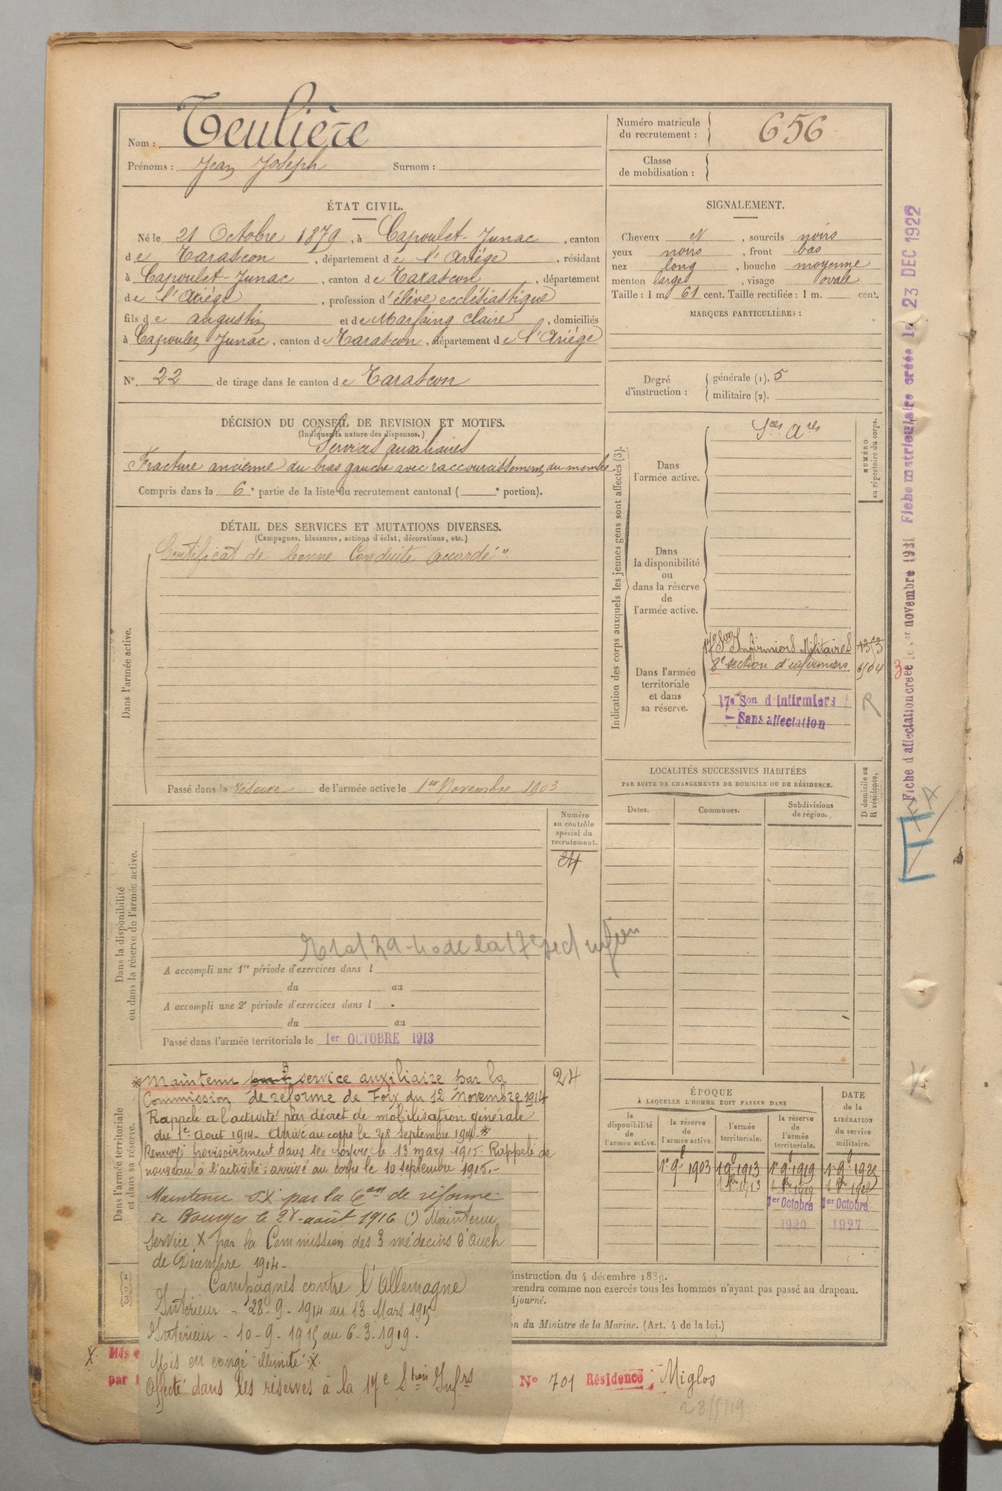 Nom : Teulière
Prénoms : Jean Joseph Surnom :
Numéro matricule du recrutement : 656
Classe de mobilisation :
ÉTAT CIVIL.
Né le 21 Octobre 1879, à Capoulet-Junac, canton
de Tarascon, département de l'Ariége, résidant
à Capoulet-Junac, canton de Tarascon, département
de l'Ariége, profession d'élève ecclésiastique
fils de Augustin et de Marfaing Claire, domiciliés
à Capoulet Junac, canton de Tarascon, département de l'Ariége
N° 22 de tirage dans le canton de Tarascon
SIGNALEMENT.
Cheveux N, sourcils noirs
yeux noirs, front bas
nez long, bouche moyenne
menton large, visage ovale
Taille : 1 m 61 cent. Taille rectifiée : 1 m. cent.
MARQUES PARTICULIÈRES :
Degré d'instruction : générale (1). 5
militaire (2).
DÉCISION DU CONSEIL DE REVISION ET MOTIFS.
(Indiquer la nature des dispenses.)
Services auxiliaires
Fracture ancienne du bras gauche avec raccourcissement du membre
Compris dans la 6e partie de la liste du recrutement cantonal ( e portion).
DÉTAIL DES SERVICES ET MUTATIONS DIVERSES.
(Campagnes, blessures, actions d'éclat, décorations, etc.)
Certificat de bonne Conduite "accordé"
Dans l'armée active.
Passé dans la réserve de l'armée active le 1er Novembre 1903
Indication des corps auxquels les jeunes gens sont affectés (3).
Dans l'armée active.
Sces Ares
NUMÉRO au répertoire du corps.
Dans la disponibilité ou dans la réserve de l'armée active.
Dans l'armée territoriale et dans sa réserve.
Infirmiers Militaires
8e section d'infirmiers
17e Son d'Infirmiers
Sans affectation
R
LOCALITÉS SUCCESSIVES HABITÉES
PAR SUITE DE CHANGEMENTS DE DOMICILE OU DE RÉSIDENCE.
Dates. Communes. Subdivisions de région. D domicile ou R résidence.
Numéro au contrôle spécial du recrutement.
24
Dans la disponibilité ou dans la réserve de l'armée active.
A accompli une 1re période d'exercices dans l
du au
A accompli une 2e période d'exercices dans l
du au
Passé dans l'armée territoriale le 1er OCTOBRE 1913
Dans l'armée territoriale et dans sa réserve.
24
Maintenu service auxiliaire par la
Commission de réforme de Foix du 12 Novembre 1914
Rappelé à l'activité par décret de mobilisation générale
du 1er Août 1914. Arrivé au corps le 28 septembre 1914.
Renvoyé provisoirement dans ses foyers le 13 mars 1915. Rappelé de
nouveau à l'activité : arrivé au corps le 10 septembre 1915.
Maintenu SX par la Con de réforme
de Bourges le 28 août 1916 (.) Maintenu
service X par la Commission des 3 médecins d'Auch
de Décembre 1914.
Campagnes contre l'Allemagne
Intérieur - 28-9-1914 au 13 Mars 1915
Intérieur - 10-9-1915 au 6-3-1919.
Mis en congé illimité X.
Affecté dans les réserves à la 17e Stion Infrs
ÉPOQUE
À LAQUELLE L'HOMME DOIT PASSER DANS
la disponibilité de l'armée active.
la réserve de l'armée active.
l'armée territoriale.
la réserve de l'armée territoriale.
DATE de la LIBÉRATION du service militaire.
1er Octobre 1920
1er Octobre 1927
instruction du 4 décembre 1889.
prendra comme non exercés tous les hommes n'ayant pas passé au drapeau.
djourné.
on du Ministre de la Marine. (Art. 4 de la loi.)
N° 701 Résidence : Miglos
Fiche d'affectation créée le 1er novembre 1931 Fiche matriculaire créée le 23 DEC 1922